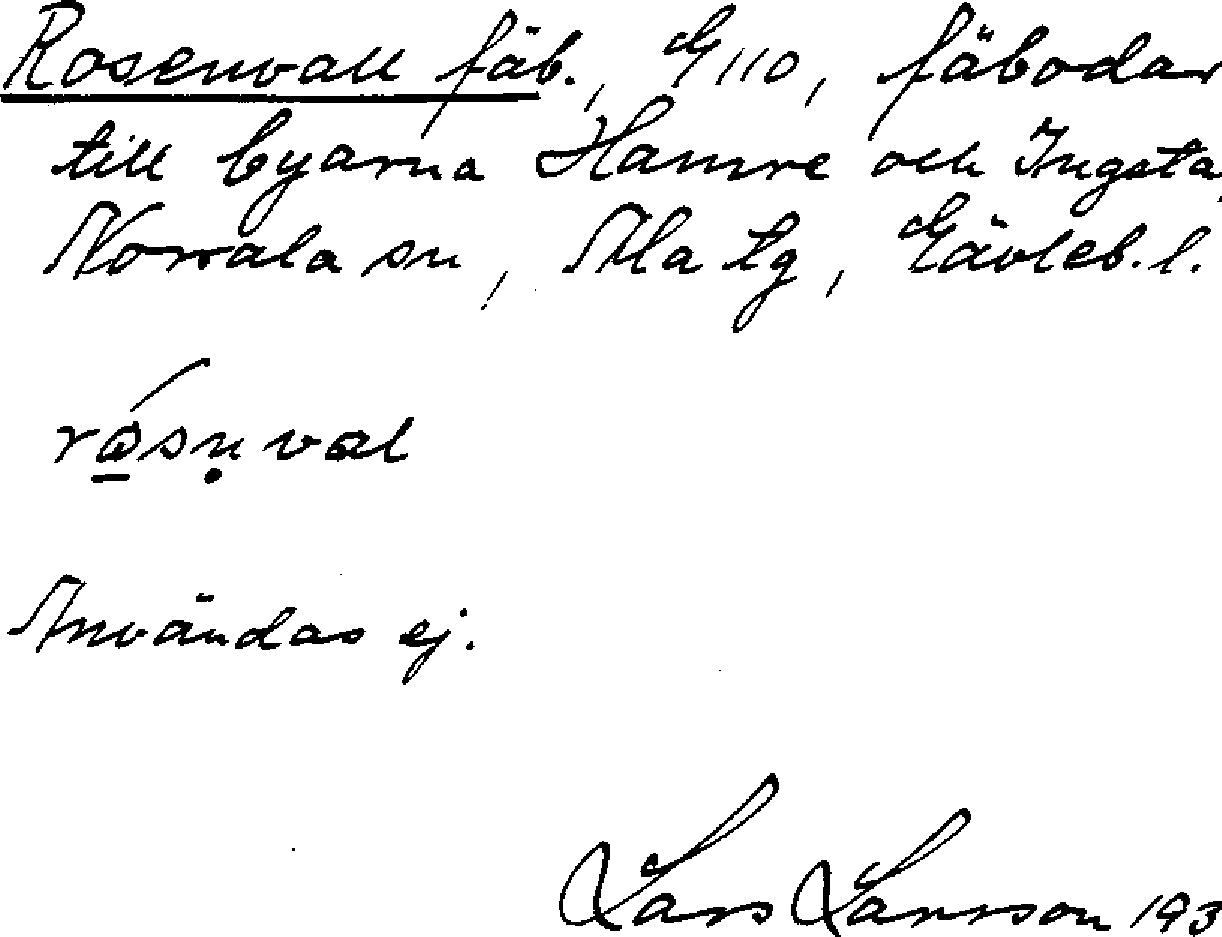 Rosenvall fäb., G 110, fäbodar
till byarna Hamre och Ingsta,
Norrala sn, Ala tg, Gävleb. l.
rǻ̱sṇval
Användas ej.
Lars Larsson 193